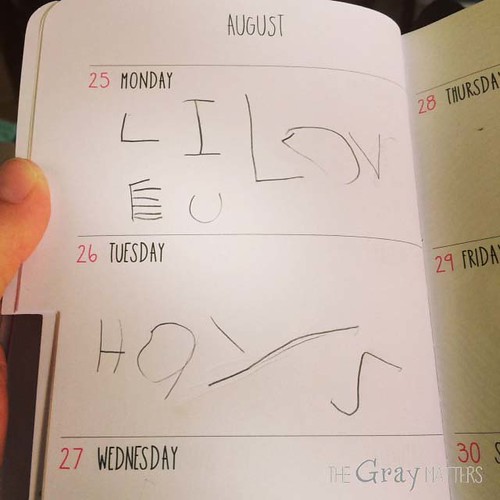 AUGUST
25 MONDAY
L I L O V
E U
26 TUESDAY
27 WEDNESDAY
28 THURSDAY
29 FRIDAY
30 S
THE Gray MATTERS